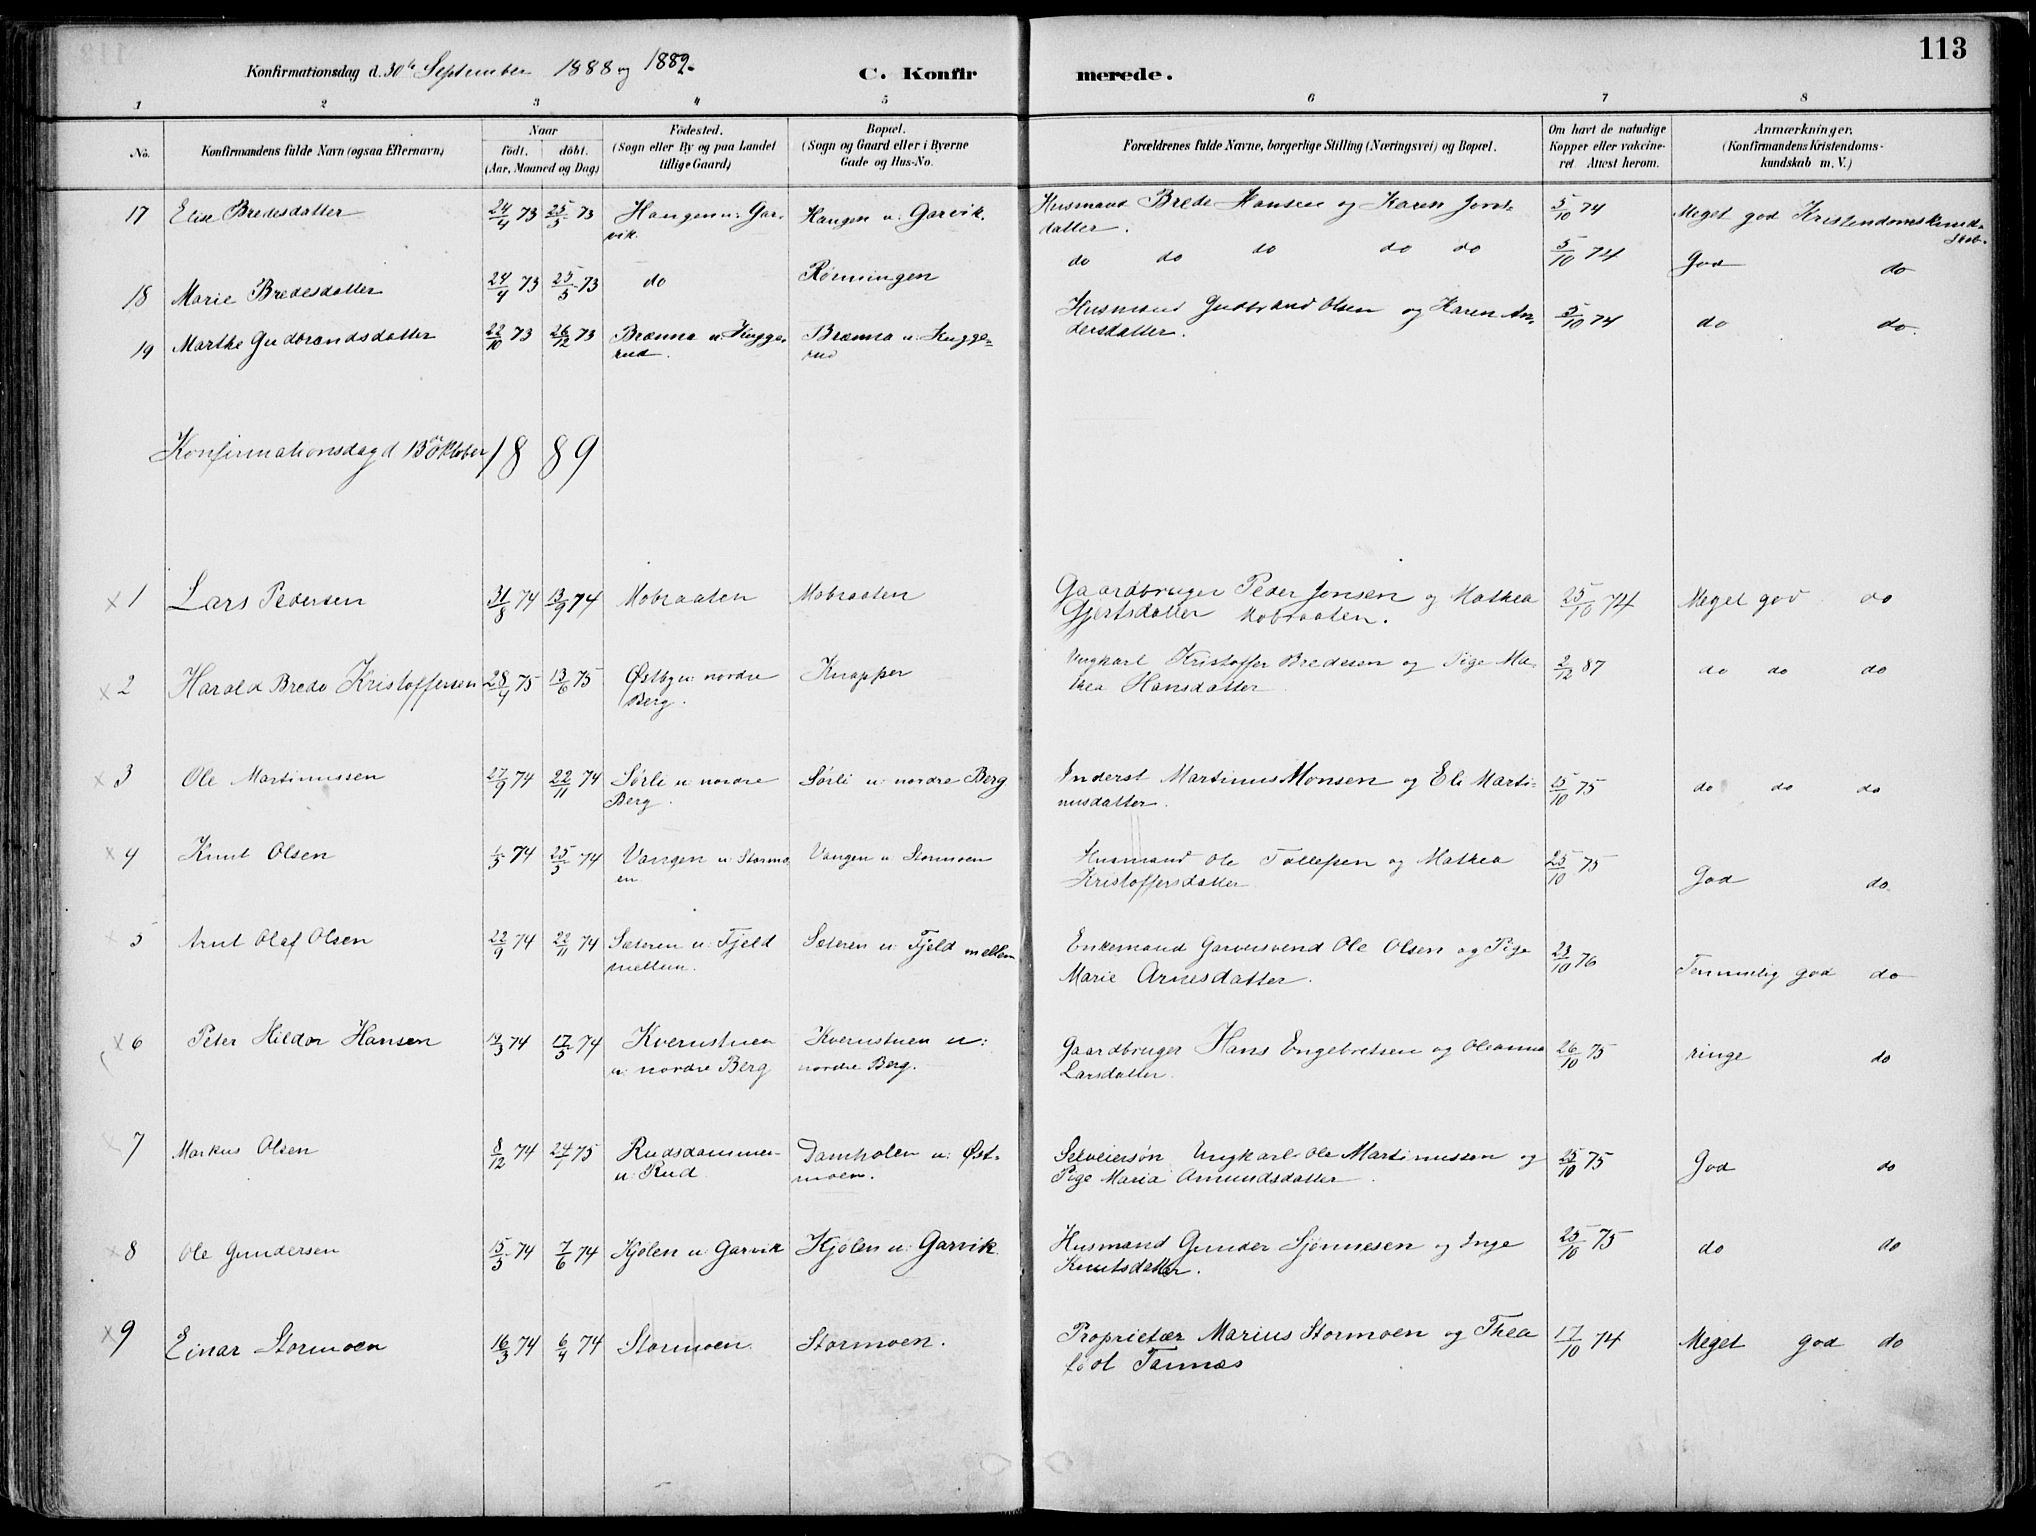 113
Konfirmationsdag d. 30te September 1888 og 1889.
C. Konfirmerede.
1 2 3 4 5 6 7 8
No. Konfirmandens fulde Navn (ogsaa Efternavn) Naar födt. döbt. (Aar, Maaned og Dag) Födested. (Sogn eller By og paa Landet tillige Gaard) Bopæl. (Sogn og Gaard eller i Byerne Gade og Hus-No. Forældrenes fulde Navne, borgerlige Stilling (Næringsvei) og Bopæl. Om havt de naturlige Kopper eller vakcineret. Attest herom. Anmærkninger. (Konfirmandens Kristendomskundskab m. V.)
17 Elise Bredesdatter 24/4 73 25/5 73 Hangen u. Garvik. Hangen u. Garvik. Husmand Brede Hansen og Karen datter. 5/10 74 Meget god Kristendomskundskab.
18 Marie Bredesdatter 24/4 73 25/5 73 do Rønningen do do do do do 5/10 74 God do
19 Marthe Gudbrandsdatter 22/10 73 26/12 73 Brænna u. Kuggerud. Brænna u. Kuggerud Husmand Gudbrand Olsen og Karen Andersdatter. 5/10 74 do do.
Konfirmationsdag d 13de Oktober 1889
x 1 Lars Pedersen 31/8 74 13/9 74 Mobraaten Mobraaten Gaardbruger Peder Jonsen og Mathea Gjertsdatter Mobraaten. 25/10 74 Meget god do
x 2 Harald Brede Kristoffersen 28/4 75 13/6 75 Østby u: nordre Berg. Knapper Ungkarl Kristoffer Bredesen og Pige Mathea Hansdatter 2/12 87 do do do
x 3 Ole Martinussen 27/9 74 22/11 74 Sørli u nordre Berg. Sørli u. nordre Berg Inderst Martinus Monsen og Eli Martinusdatter. 15/10 75 do do do
x 4 Knut Olsen 1/3 74 25/5 74 Vangen u. Stormoen Vangen u. Stormoen Husmand Ole Tollefsen og Mathea Kristoffersdatter 25/10 75 God do
x 5 Arnt Olaf Olsen 22/9 74 22/11 74 Sæteren u. Fjeld mellem. Sæteren u. Fjeld mellem Enkemand Garversvend Ole Olsen og Pige Marie Arnesdatter. 23/10 76 Temmelig god do
x 6 Peter Hildor Hansen 14/3 74 17/5 74 Kvernstuen u. nordre Berg Kvernstuen u: nordre Berg. Gaardbruger Hans Engebretsen og Oleanna Larsdatter. 26/10 75 ringe do
x 7 Markus Olsen 8/12 74 24/1 75 Rudsdammen u. Rud Damholen u: Østmoen. Selveiersøn Ungkarl Ole Martinussen og Pige Maria Amundsdatter. 25/10 75 God do
x 8 Ole Gundersen 15/3 74 7/6 74 Kjølen u. Garvik Kjølen u. Garvik. Husmand Gunder Sjønnesen og Inge Knutsdatter. 25/10 75 do do
x 9 Einar Stormoen 16/3 74 6/4 74 Stormoen. Stormoen. Proprietær Marius Stormoen og Thea født Tannæs 17/10 74 Meget god do